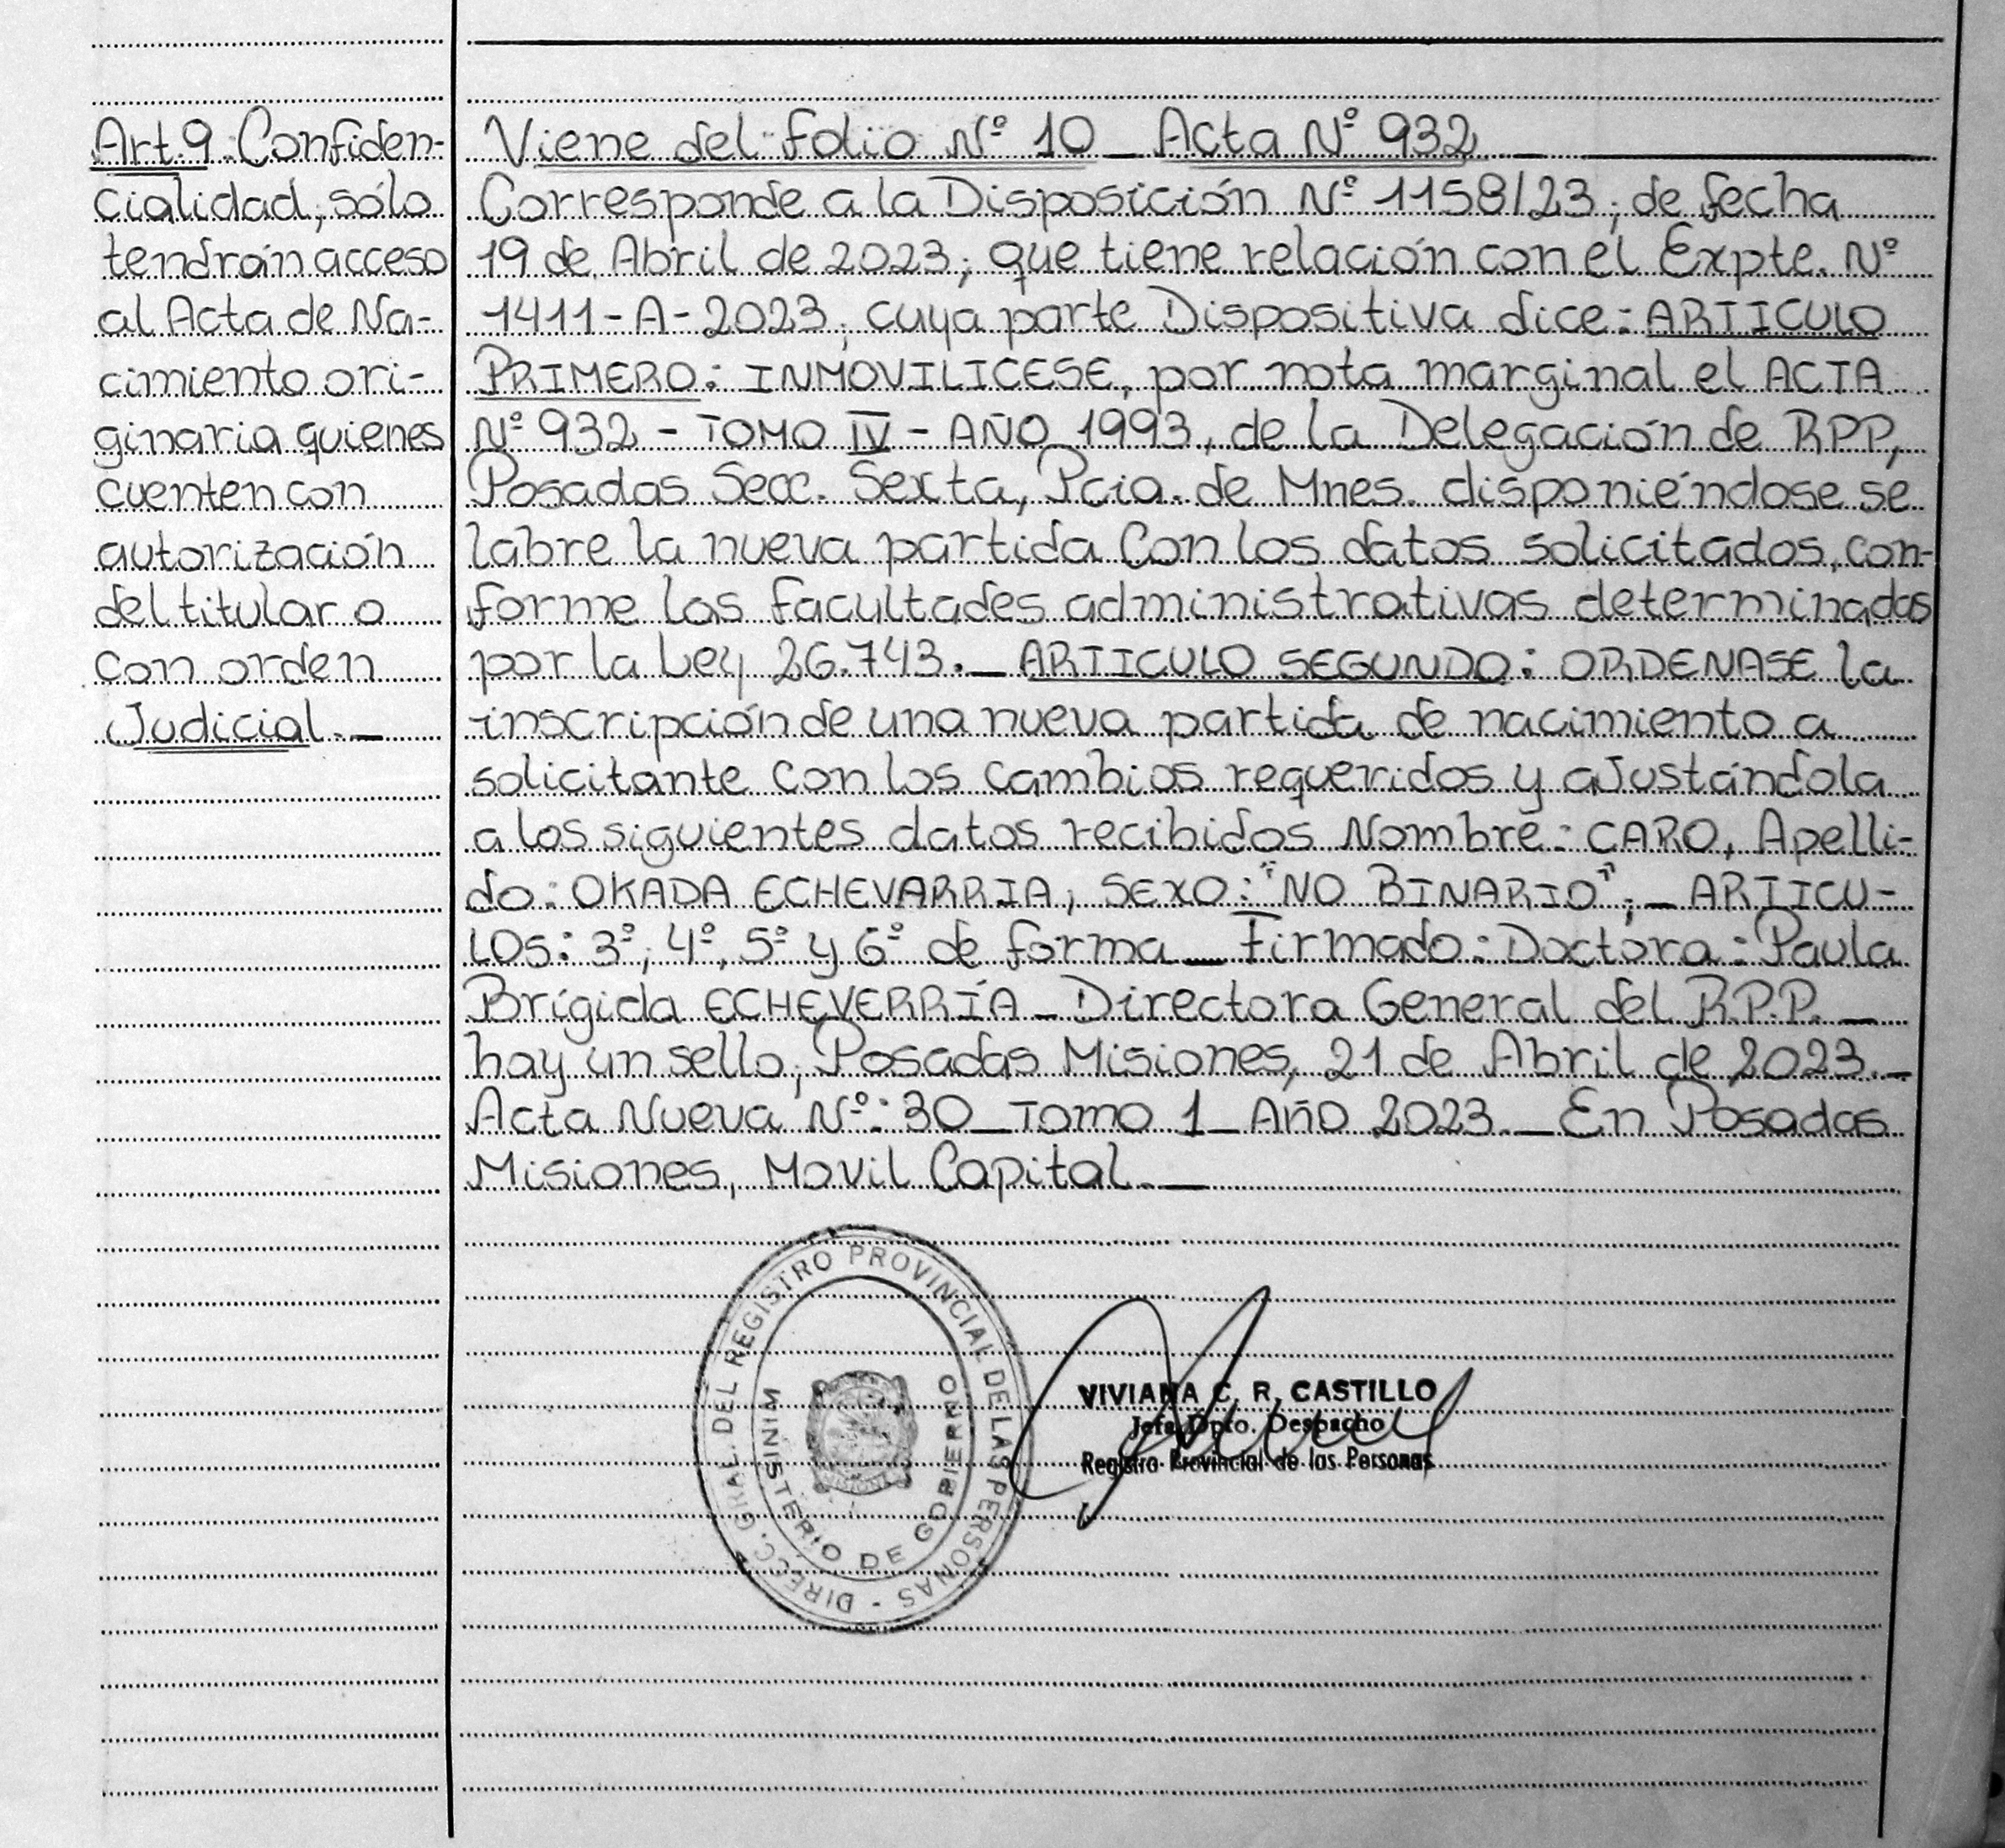 Art. 9: Confiden-
cialidad, sólo
tendrán acceso
al Acta de Na-
cimiento ori-
ginaria quienes
cuenten con
autorización
del titular o
con orden
Judicial.-
Viene del folio Nº 10 _ Acta Nº 932
Corresponde a la Disposición Nº 1158/23, de fecha
19 de Abril de 2023, que tiene relación con el Expte. Nº
1411-A-2023, cuya parte Dispositiva dice: ARTICULO
PRIMERO: INMOVILICESE, por nota marginal el ACTA
Nº 932 - TOMO IV - AÑO 1993, de la Delegación de RPP,
Posadas Secc. Sexta, Pcia. de Mnes. disponiéndose se
labre la nueva partida Con los datos solicitados, con-
forme las facultades administrativas determinadas
por la Ley 26.743._ ARTICULO SEGUNDO: ORDENASE la
inscripción de una nueva partida de nacimiento a
solicitante con los cambios requeridos y ajustándola
a los siguientes datos recibidos Nombre: CARO, Apelli-
do: OKADA ECHEVARRIA, SEXO: "NO BINARIO"; _ ARTICU-
LOS: 3º, 4º, 5º y 6º de forma _ Firmado: Doctora: Paula
Brígida ECHEVERRÍA _ Directora General del R.P.P. _
hay un sello, Posadas Misiones, 21 de Abril de 2023._
Acta Nueva Nº: 30 _ Tomo 1 _ Año 2023. _ En Posadas
Misiones, Movil Capital._
DIRECC. GRAL. DEL REGISTRO PROVINCIAL DE LAS PERSONAS -
MINISTERIO DE GOBIERNO
MISIONES
VIVIANA C. R. CASTILLO
Jefa Dpto. Despacho
Registro Provincial de las Personas